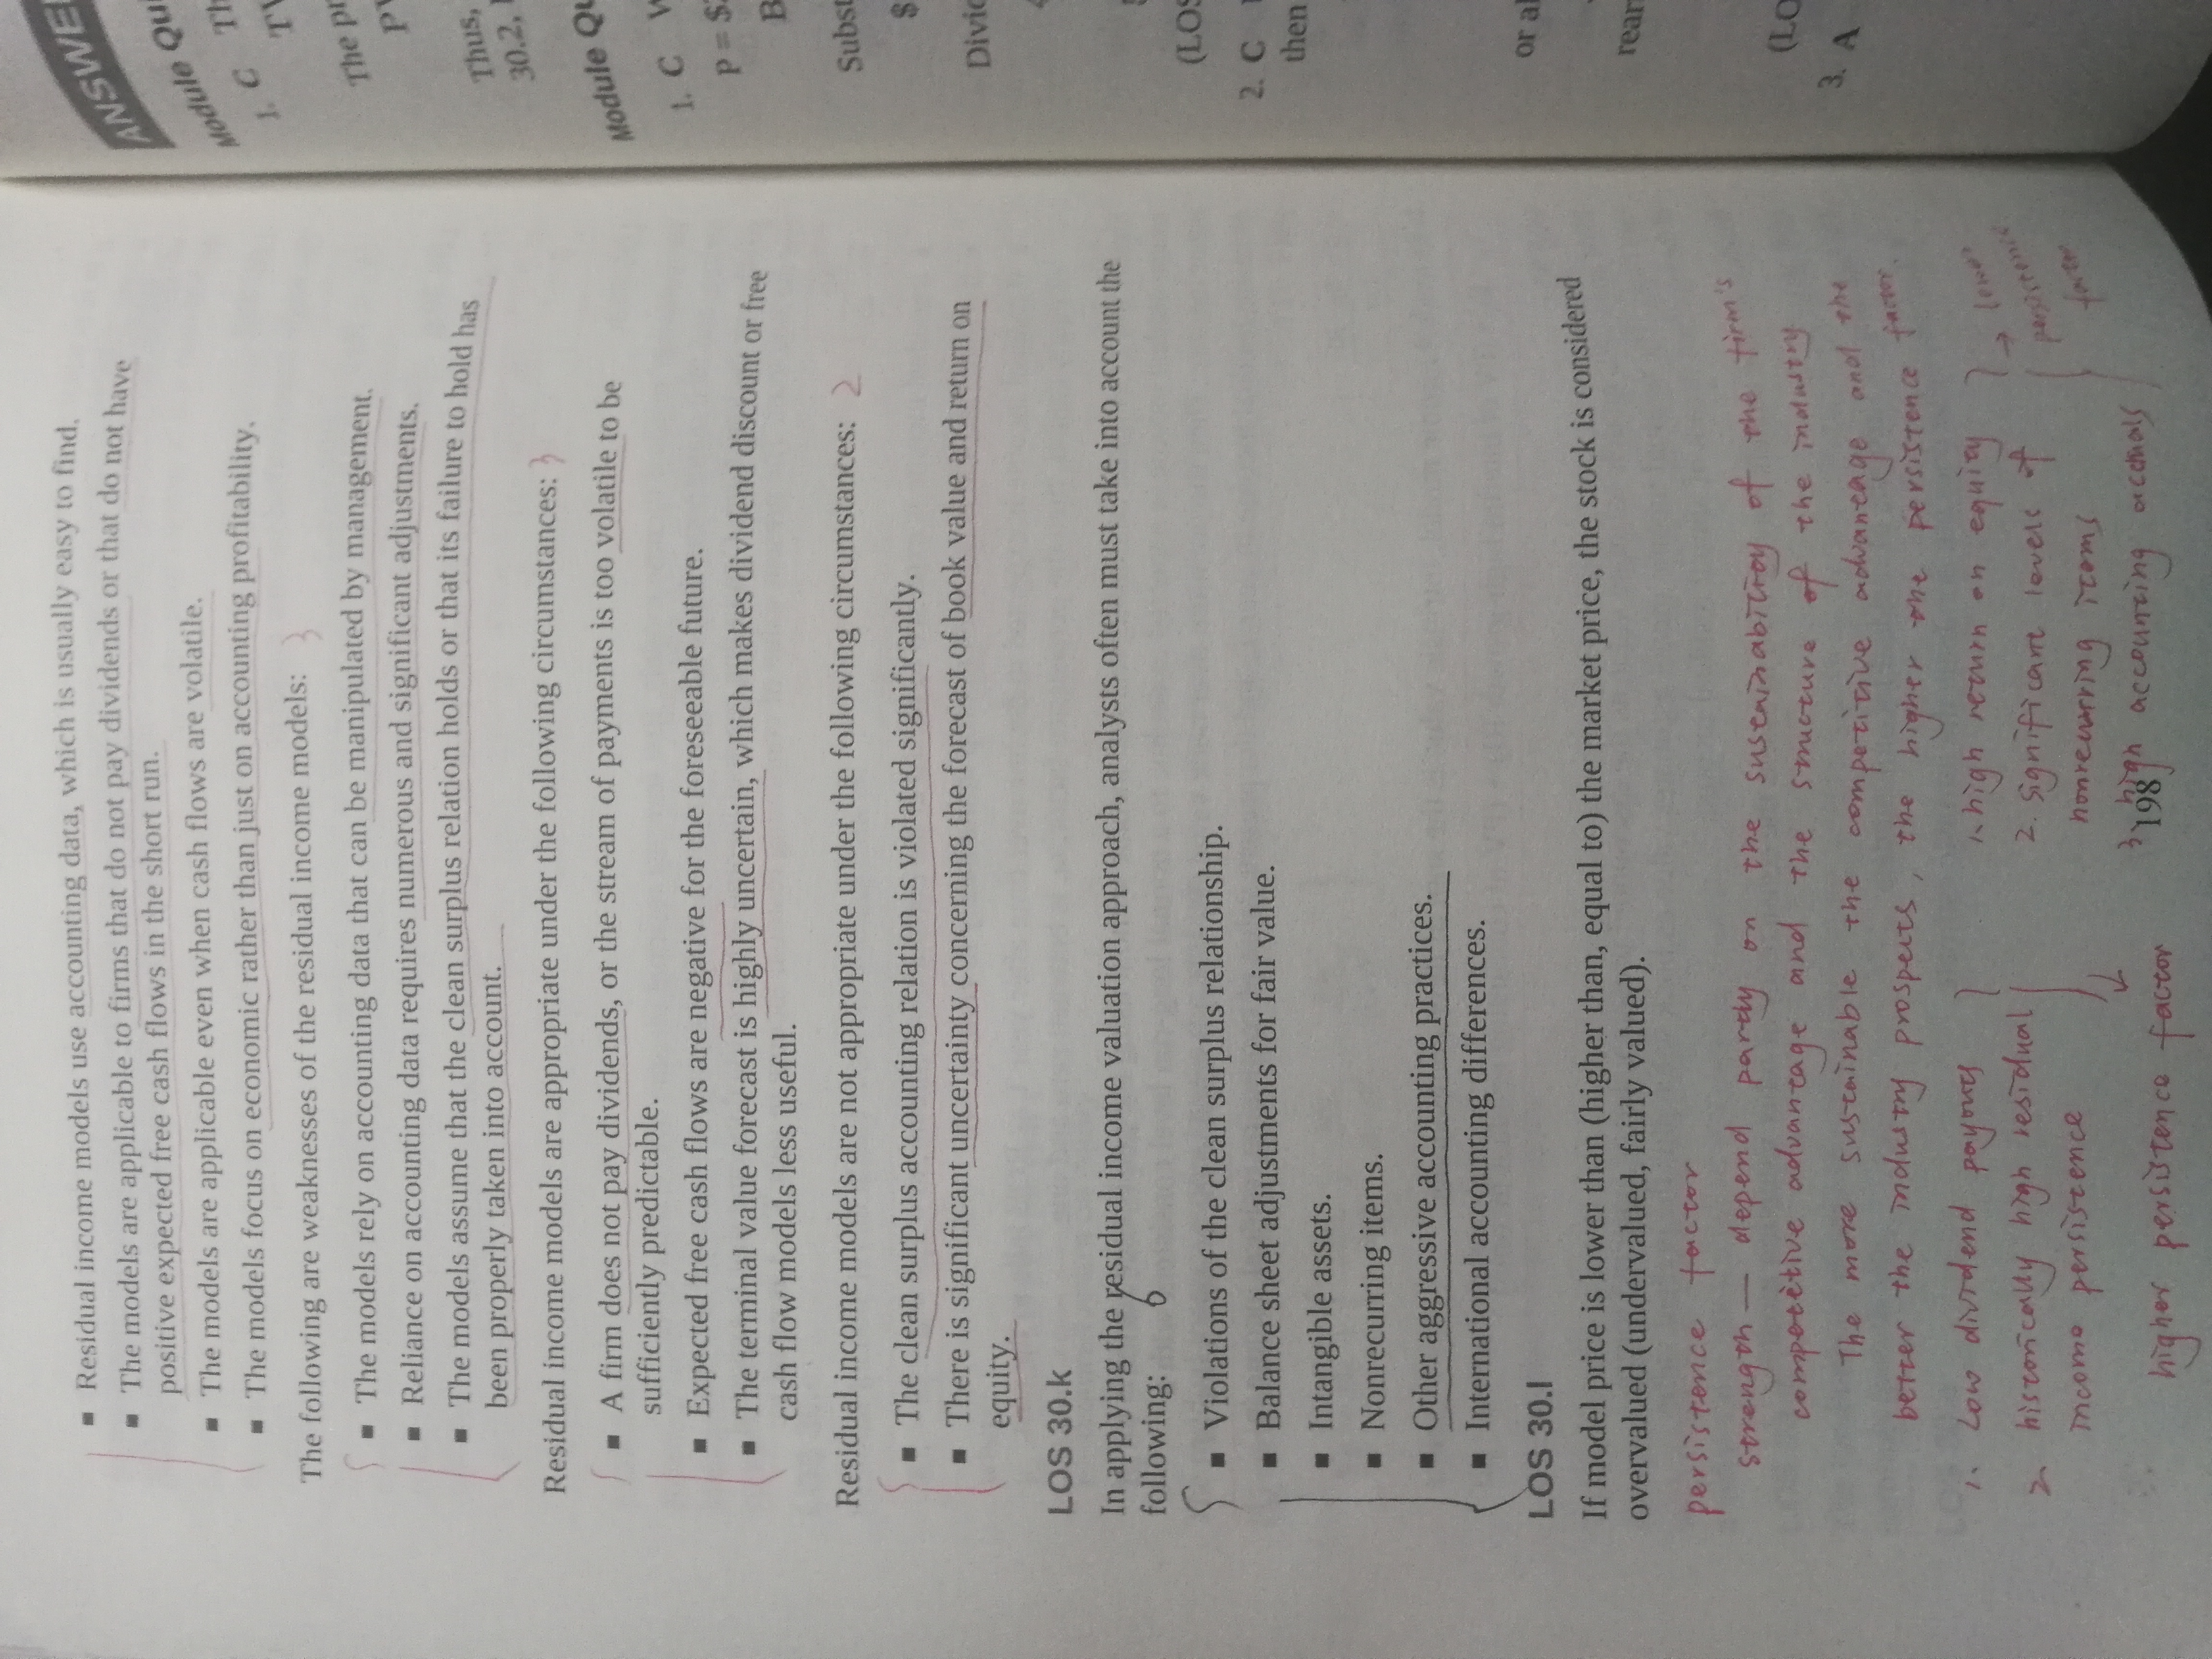 ▪ Residual income models use accounting data, which is usually easy to find.
▪ The models are applicable to firms that do not pay dividends or that do not have
positive expected free cash flows in the short run.
▪ The models are applicable even when cash flows are volatile.
▪ The models focus on economic rather than just on accounting profitability.
The following are weaknesses of the residual income models: 3
▪ The models rely on accounting data that can be manipulated by management.
▪ Reliance on accounting data requires numerous and significant adjustments.
▪ The models assume that the clean surplus relation holds or that its failure to hold has
been properly taken into account.
Residual income models are appropriate under the following circumstances: 3
▪ A firm does not pay dividends, or the stream of payments is too volatile to be
sufficiently predictable.
▪ Expected free cash flows are negative for the foreseeable future.
▪ The terminal value forecast is highly uncertain, which makes dividend discount or free
cash flow models less useful.
Residual income models are not appropriate under the following circumstances: 2
▪ The clean surplus accounting relation is violated significantly.
▪ There is significant uncertainty concerning the forecast of book value and return on
equity.
LOS 30.k
In applying the residual income valuation approach, analysts often must take into account the
following: 6
▪ Violations of the clean surplus relationship.
▪ Balance sheet adjustments for fair value.
▪ Intangible assets.
▪ Nonrecurring items.
▪ Other aggressive accounting practices.
▪ International accounting differences.
LOS 30.l
If model price is lower than (higher than, equal to) the market price, the stock is considered
overvalued (undervalued, fairly valued).
persistence factor
strength — depend partly on the sustainability of the firm's
competitive advantage and the structure of the industry
The more sustainable the competitive advantage and the
better the industry prospects, the higher the persistence factor.
1. Low dividend payout
2 historically high residual
income persistence
higher persistence factor
1. high return on equity
2. significant levels of
nonrecurring items
3 high accounting accruals
→ lower
persistence
factor
198
ANSWE
Module Qui
1. C Th
TV
The pr
PV
Thus,
30.2,
Module Qu
1. C W
P = $
B
Subst
$
Divid
(LOS
2. C
then
or al
rear
(LO
3. A